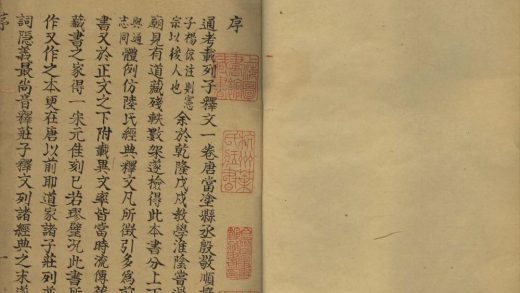 序
通考載列子釋文一卷唐當塗縣丞殷敬順
子楊倞注則憲
宗以後人也
余於乾隆戊戌教學淮陰嘗過
廟見有道藏殘軼數架遂檢得此本書分上下
與通
志同
體例仿陸氏經典釋文凡所徵引多為前
書又於正文之下附載異文率皆當時流傳
藏書之家得一宋元佳刻已若璆璧況此書所
作又作之本更在唐以前即道家諸子莊列並
詞隱義最尚音釋莊子釋文列諸經典之末遂
序
一
杭州葉氏藏書